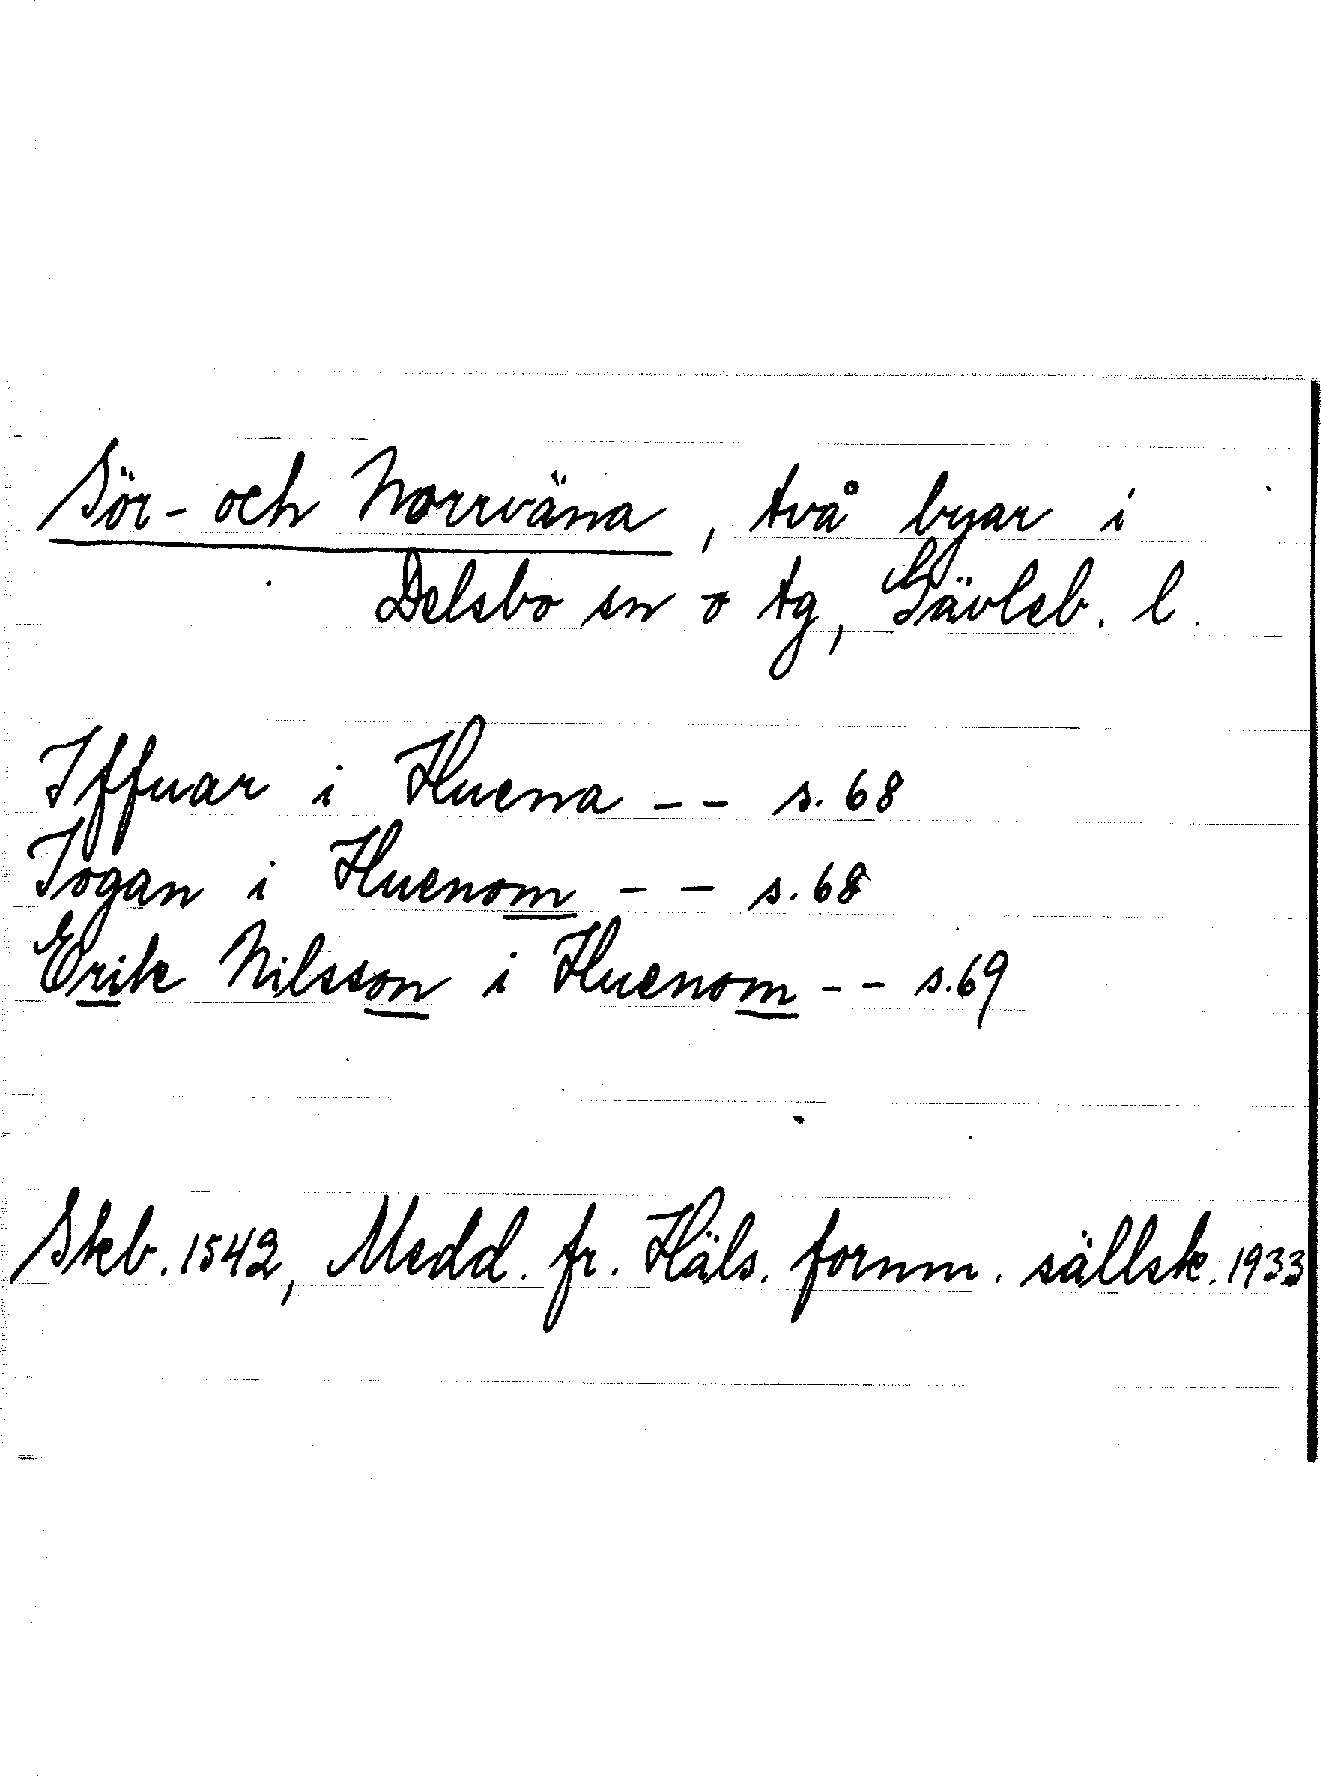 Sör- och Norrväna, två byar i
Delsbo sn o tg, Gävleb. l.
Iffuar i Huena -- s. 68
Jogan i Huenom -- s. 68
Erik Nilsson i Huenom -- s. 69
Skb. 1542, Medd. fr. Häls. fornm. sällsk. 1933